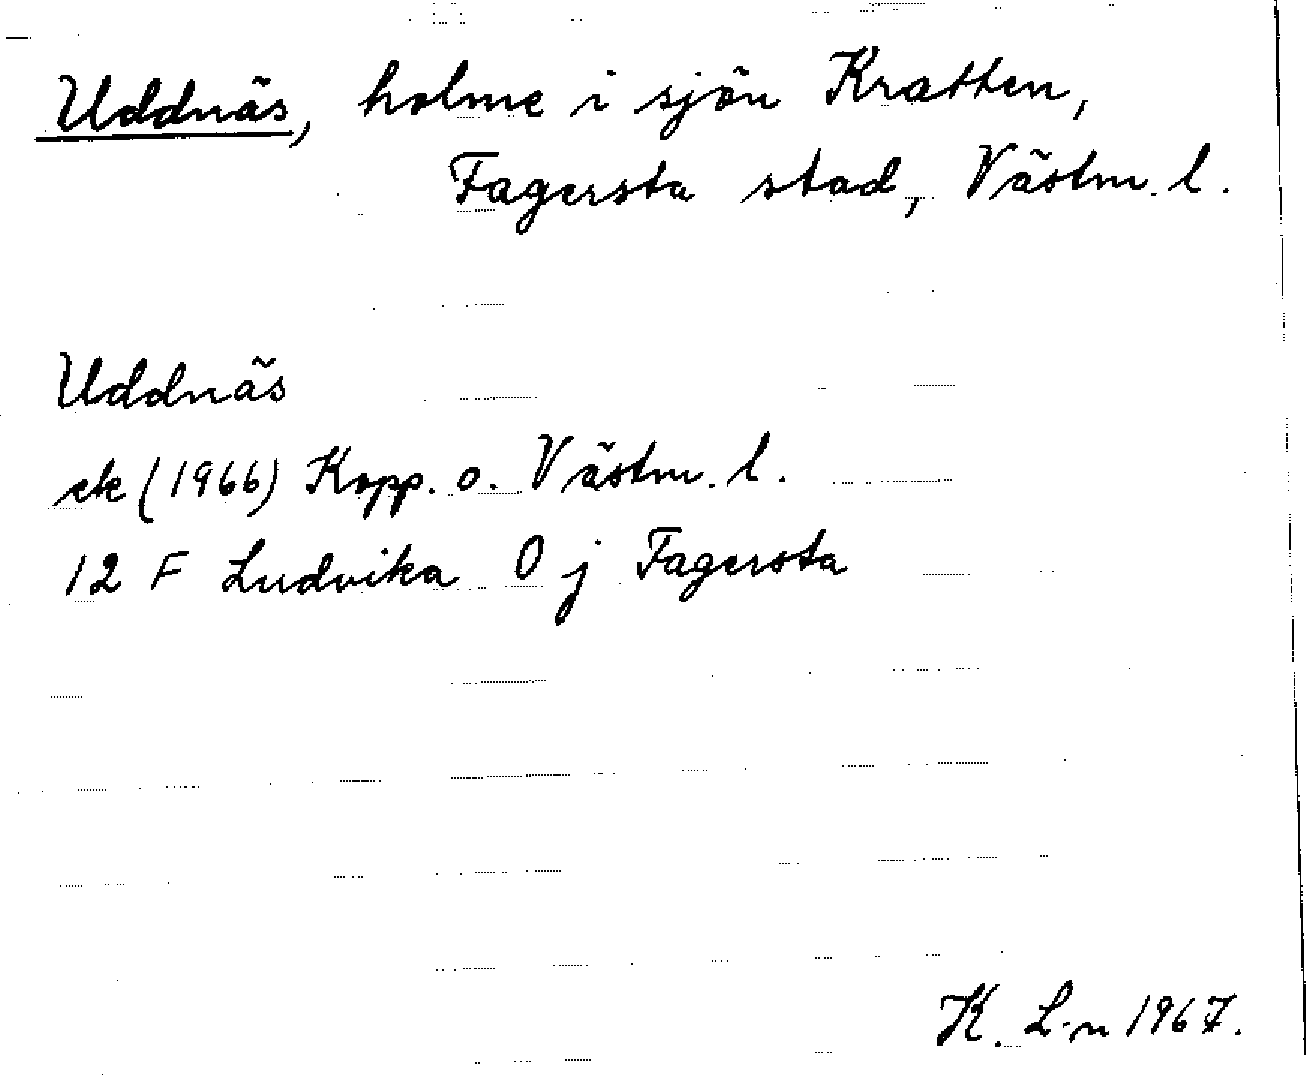 Uddnäs, holme i sjön Kratten,
Fagersta stad, Västm. l.
Uddnäs
ek (1966) Kopp. o. Västm. l.
12 F Ludvika 0 j Fagersta
K. L-n 1967.